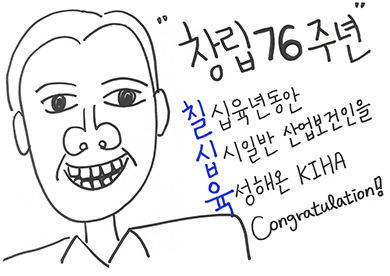 "창립76주년"
칠십육년동안
십시일반 산업보건인을
육성해온 KIHA
Congratulation!